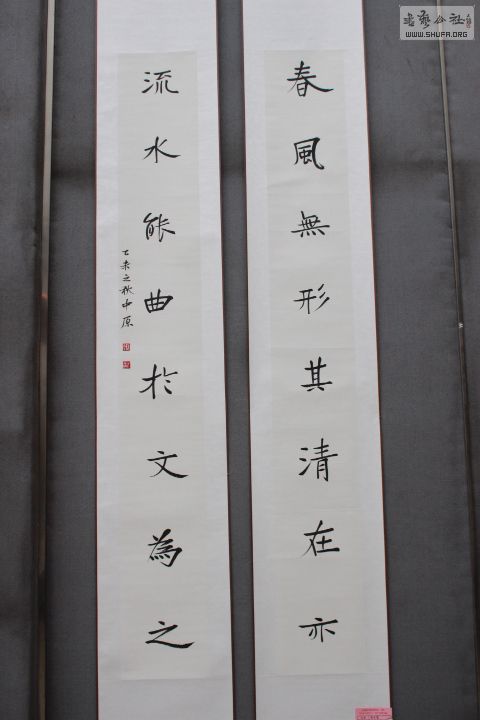 書藝公社
WWW.SHUFA.ORG
春風無形其清在亦
流水能曲於文為之
乙未之秋中原